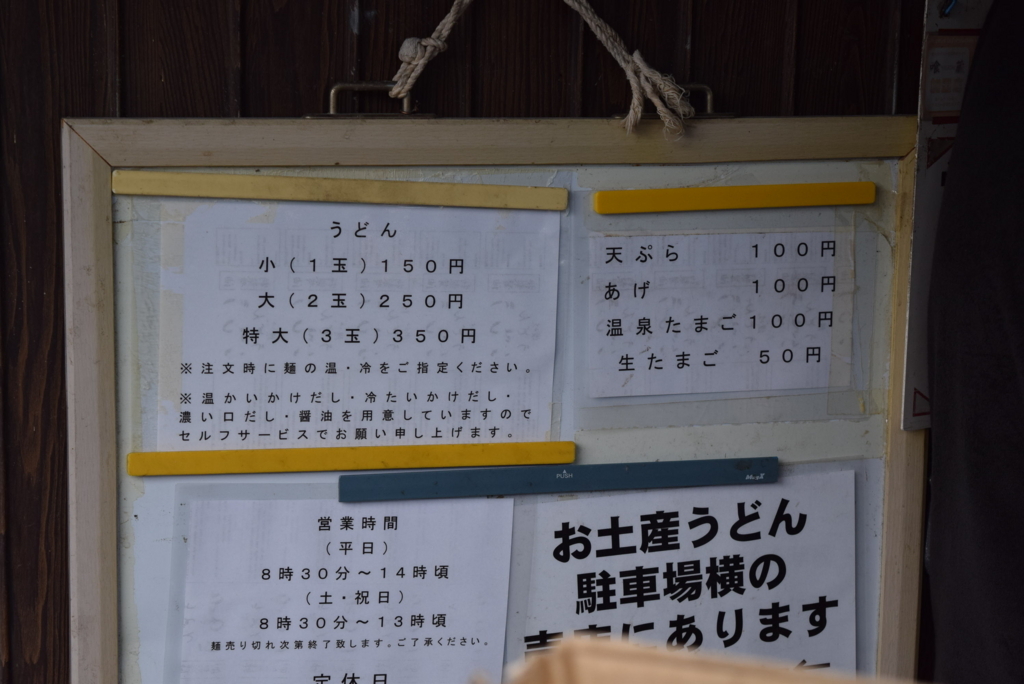 うどん
小(1玉)150円
大(2玉)250円
特大(3玉)350円
※注文時に麺の温・冷をご指定ください。
※温かいかけだし・冷たいかけだし・
濃い口だし・醤油を用意していますので
セルフサービスでお願い申し上げます。
天ぷら 100円
あげ 100円
温泉たまご100円
生たまご 50円
PUSH
営業時間
(平日)
8時30分〜14時頃
(土・祝日)
8時30分〜13時頃
麺売り切れ次第終了致します。ご了承ください。
定休日
お土産うどん
駐車場横の
にあります